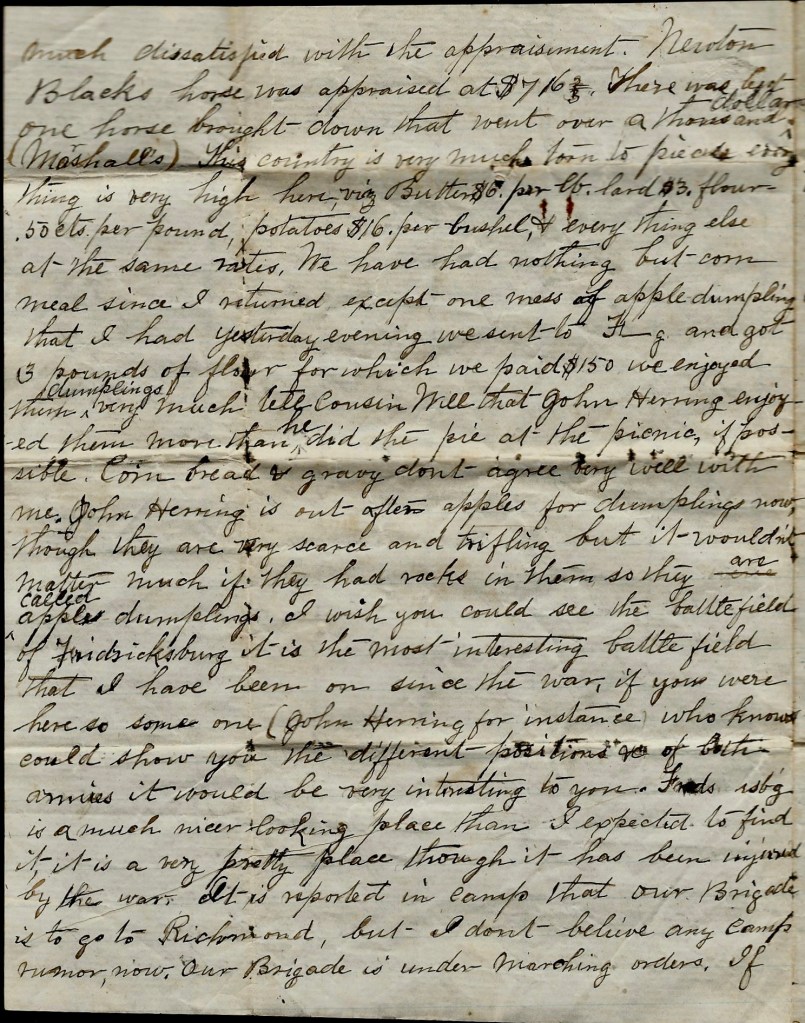 much dissatisfied with the appraisement. Newton
Blacks horse was appraised at $716 2/3. There was but
one horse brought down that went over a thousand dollars
(Mashall's) This country is very much torn to pieces every
thing is very high here, viz Butter $6. per lb. lard $3. flour
.50cts. per pound, potatoes $16. per bushel, & every thing else
at the same rates. We have had nothing but corn
meal since I returned except one mess of apple dumpling
that I had yesterday evening we sent to F g. and got
3 pounds of flour for which we paid $150 we enjoyed
them dumplings very much tell Cousin Will that John Herring enjoy-
-ed them more than he did the pie at the picnic, if pos-
sible. Corn bread & gravy dont agree very well with
me. John Herring is out after apples for dumplings now,
though they are very scarce and trifling but it wouldn't
matter much if they had rocks in them so they are
called apple dumplings. I wish you could see the battlefield
of Fridricksburg it is the most interesting battle field
that I have been on since the war, if you were
here so some one (John Herring for instance) who knows
could show you the different positions &c of both
armies it would be very intresting to you. Freds'isb'g
is a much nicer looking place than I expected to find
it, it is a very pretty place though it has been injured
by the war. It is reported in camp that our Brigade
is to go to Richmond, but I dont believe any camp
rumor, now. Our Brigade is under marching orders. If